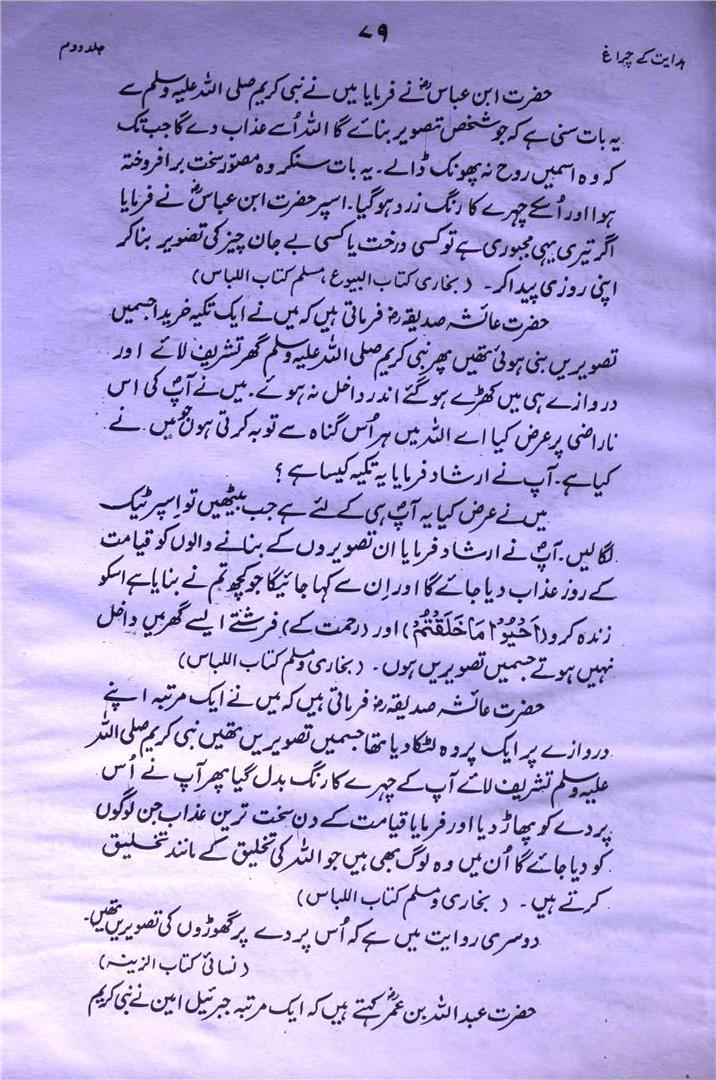 ہدایت کے چراغ ۷۹ جلد دوم
حضرت ابن عباسؓ نے فرمایا میں نے نبی کریم صلی اللہ علیہ وسلم سے
یہ بات سنی ہے کہ جو شخص تصویر بنائے گا اللہ اُسے عذاب دے گا جب تک
کہ وہ اسمیں روح نہ پھونک ڈالے۔ یہ بات سنکر وہ مصوّر سخت برافروختہ
ہوا اور اُسکے چہرے کا رنگ زرد ہو گیا۔ اسپر حضرت ابن عباسؓ نے فرمایا
اگر تیری یہی مجبوری ہے تو کسی درخت یا کسی بے جان چیز کی تصویر بنا کر
اپنی روزی پیدا کر۔ (بخاری کتاب البیوع، مسلم کتاب اللباس)
حضرت عائشہ صدیقہؓ فرماتی ہیں کہ میں نے ایک تکیہ خریدا جسمیں
تصویریں بنی ہوئی تھیں پھر نبی کریم صلی اللہ علیہ وسلم گھر تشریف لائے اور
دروازے ہی میں کھڑے ہو گئے اندر داخل نہ ہوئے۔ میں نے آپؐ کی اس
ناراضی پر عرض کیا اے اللہ میں ہر اُس گناہ سے توبہ کرتی ہوں جو میں نے
کیا ہے۔ آپ نے ارشاد فرمایا یہ تکیہ کیسا ہے؟
میں نے عرض کیا یہ آپؐ ہی کے لئے ہے جب بیٹھیں تو اسپر ٹیک
لگالیں۔ آپؐ نے ارشاد فرمایا ان تصویروں کے بنانے والوں کو قیامت
کے روز عذاب دیا جائے گا اور اِن سے کہا جائیگا جو کچھ تم نے بنایا ہے اسکو
زندہ کرو (اَحْیُوْا مَا خَلَقْتُمْ) اور (رحمت کے) فرشتے ایسے گھر میں داخل
نہیں ہوتے جسمیں تصویریں ہوں۔ (بخاری و مسلم کتاب اللباس)
حضرت عائشہ صدیقہؓ فرماتی ہیں کہ میں نے ایک مرتبہ اپنے
دروازے پر ایک پردہ لٹکا دیا تھا جسمیں تصویریں تھیں نبی کریم صلی اللہ
علیہ وسلم تشریف لائے آپ کے چہرے کا رنگ بدل گیا پھر آپ نے اُس
پردے کو پھاڑ دیا اور فرمایا قیامت کے دن سخت ترین عذاب جن لوگوں
کو دیا جائے گا اُن میں وہ لوگ بھی ہیں جو اللہ کی تخلیق کے مانند تخلیق
کرتے ہیں۔ (بخاری و مسلم کتاب اللباس)
دوسری روایت میں ہے کہ اُس پردے پر گھوڑوں کی تصویریں تھیں۔
(نسائی کتاب الزینہ)
حضرت عبداللہ بن عمرؓ کہتے ہیں کہ ایک مرتبہ جبرئیل امین نے نبی کریم